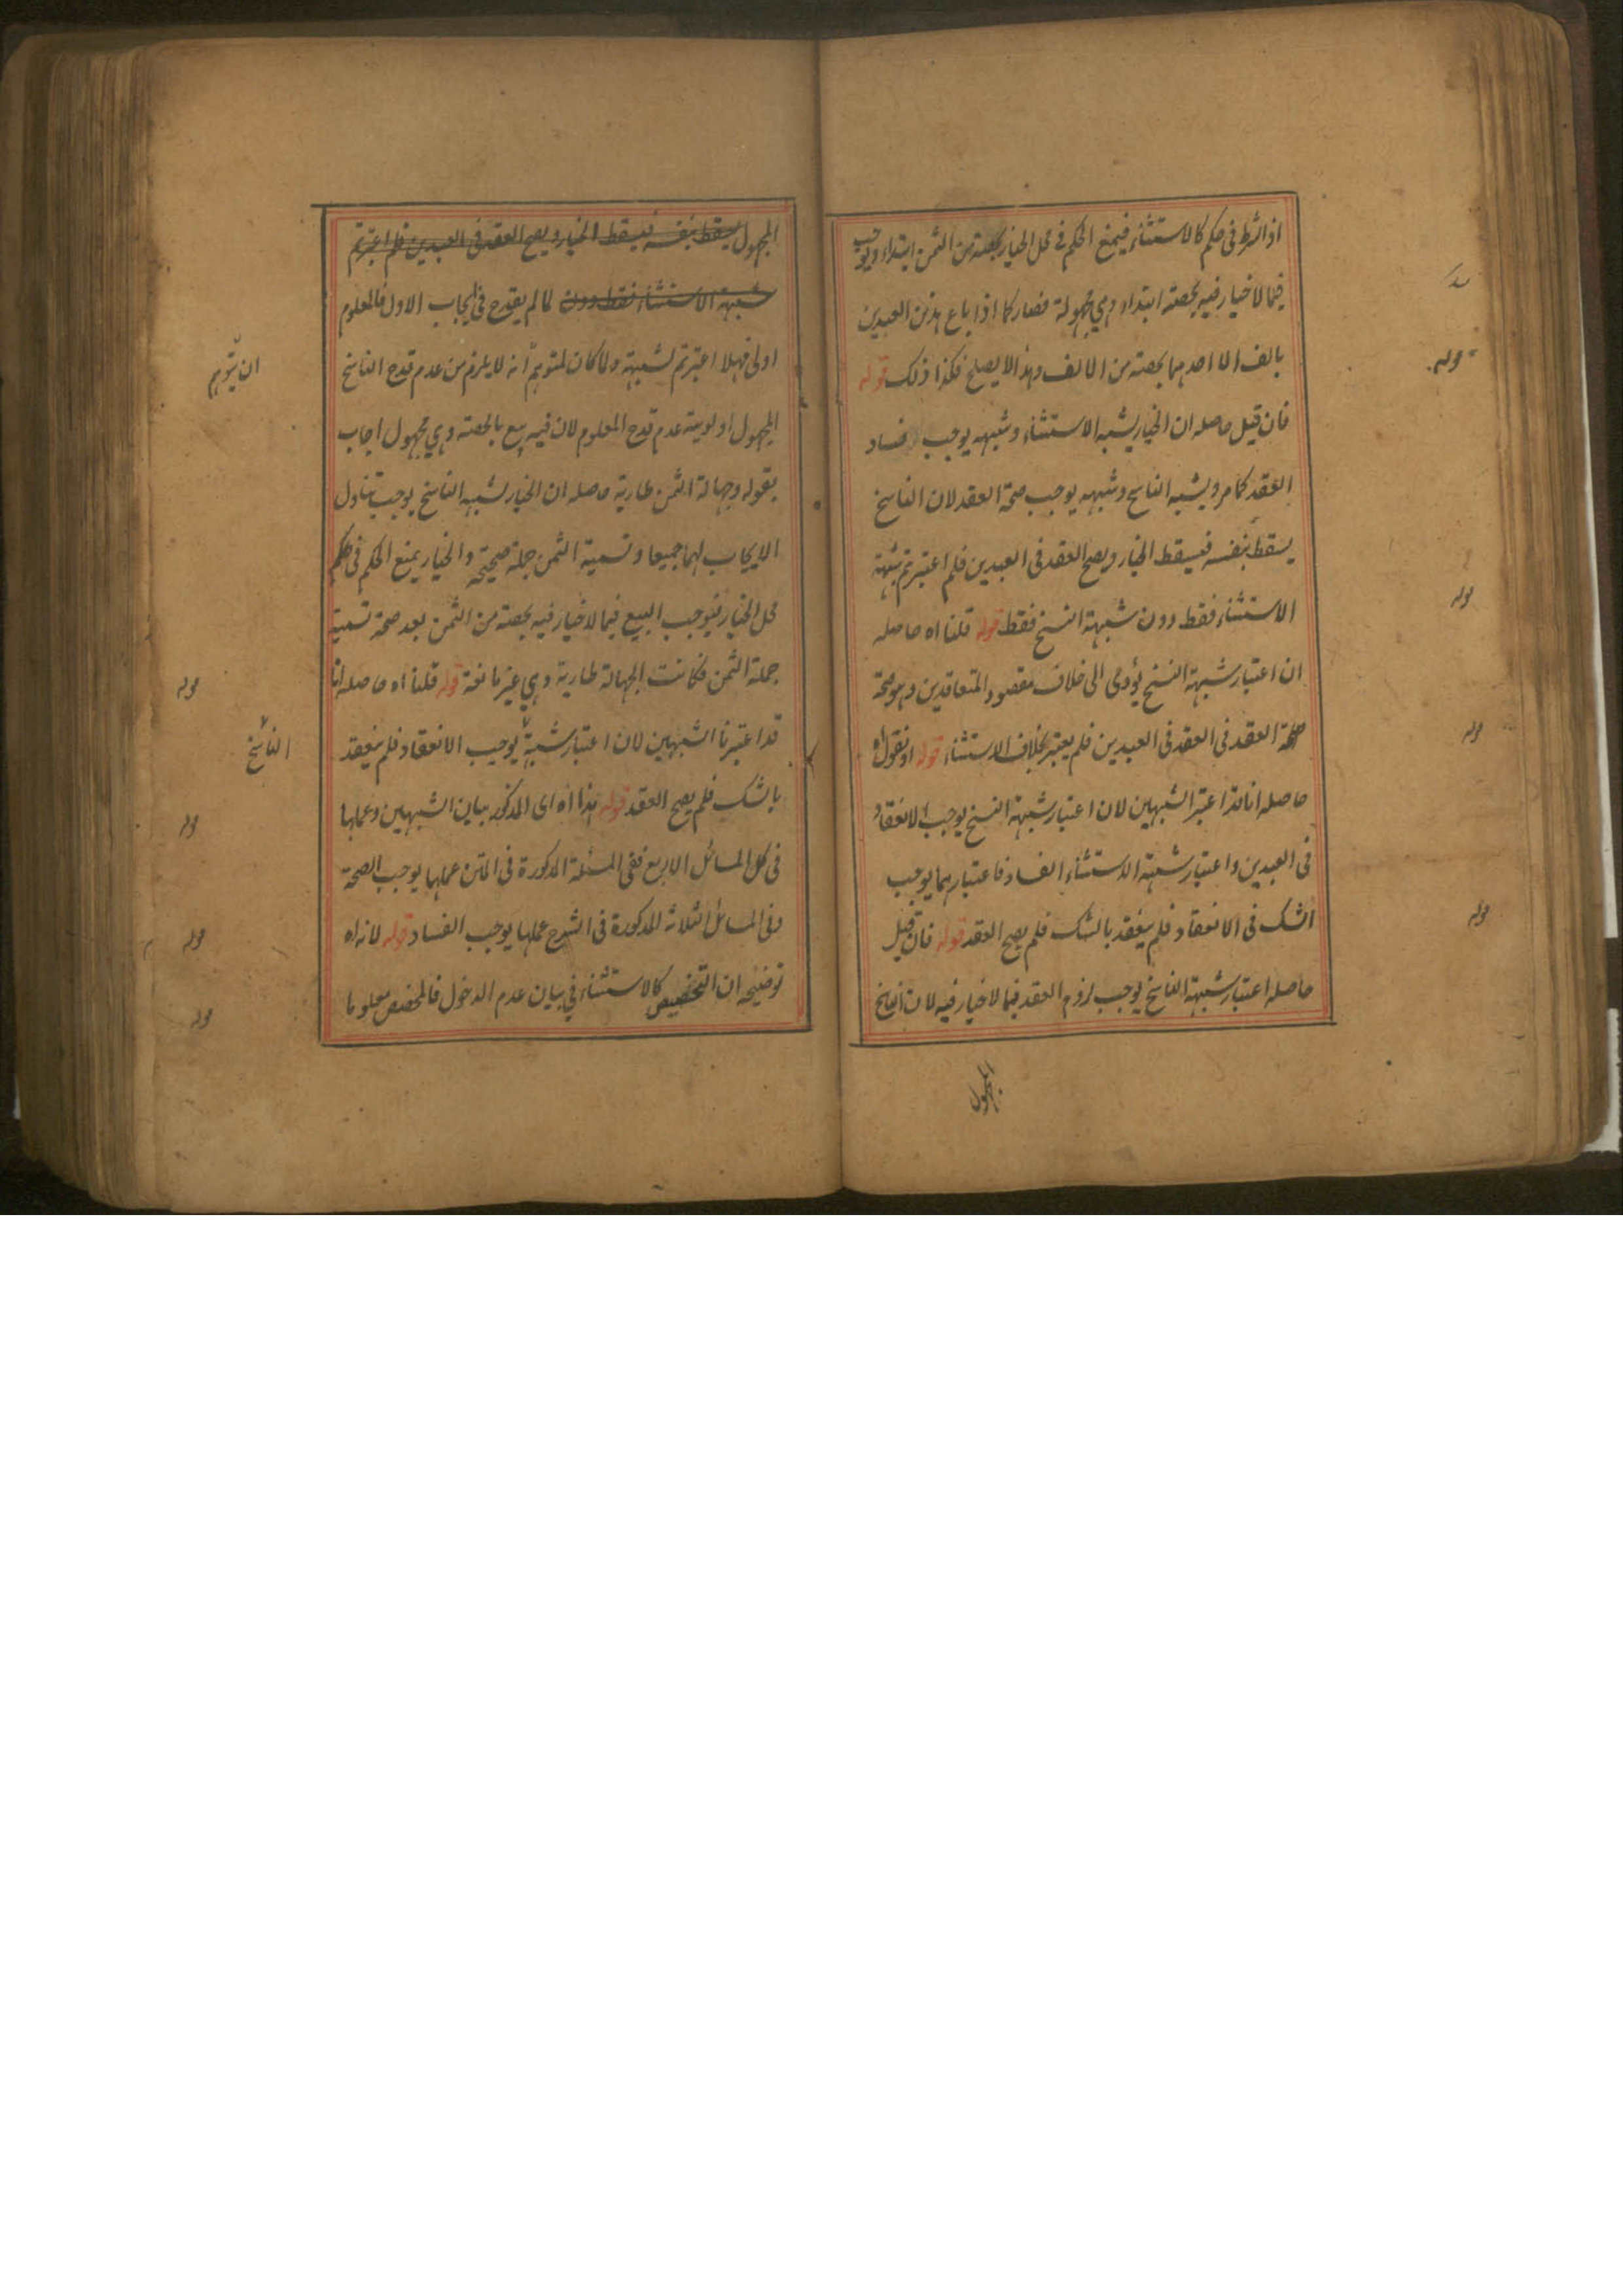 اذ الشرط فى حكم كالاستثناء فيمنع الحكم فى محل الخيار بحصته من الثمن ابتداء ويوجب
فيما لا خيار فيه بحصته ابتداء وهي مجهولة فصار كما اذا باع هذين العبدين
بالف الا احدهما بحصته من الالف وهذا لا يصلح فكذا ذلك قوله
فان قيل حاصله ان الخيار يشبه الاستثناء وشبهه يوجب فساد
العقد كما مر ويشبه الناسخ وشبهه يوجب صحة العقد لان الناسخ
يسقط بنفسه فيسقط الخيار ويصح العقد فى العبدين فلم اعتبرتم شبهة
الاستثناء فقط دون شبهة النسخ فقط قوله قلنا اه حاصله
ان اعتبار شبهة النسخ يؤدى الى خلاف مقصود المتعاقدين وهو صحة
صحة العقد فى العقد فى العبدين فلم يعتبر بخلاف الاستثناء قوله او نقول اه
حاصله انا قد اعتبر الشبهين لان اعتبار شبهة النسخ يوجب الانعقاد
فى العبدين واعتبار شبهة الاستثناء الفساد فاعتبارهما يوجب
الشك فى الانعقاد فلم ينعقد بالشك فلم يصح العقد قوله فان قيل
حاصله اعتبار شبهة الناسخ يوجب لزوم العقد فيما لا خيار فيه لان الناسخ
المجهول
قوله
قوله
قوله
قوله
المجهول يسقط بنفسه فيسقط الخيار ويصح العقد فى العبدين فلم اعتبرتم
شبهة الاستثناء فقط دون لما لم يقدح فى ايجاب الاول فالمعلوم
اولى فهلا اعتبرتم لشبهة ولما كان لمتوهم انه لا يلزم من عدم قدح الناسخ
المجهول اولوية عدم قدح المعلوم لان فيه بيع بالحصة وهي مجهول اجاب
بقوله وجهالة الثمن طارية حاصله ان الخيار لشبهه الناسخ يوجب تناول
الايجاب لهما جميعا وتسمية الثمن جملة صحيحة والخيار يمنع الحكم فى حكم
محل الخيار فيوجب البيع فيما لا خيار فيه بحصته من الثمن بعد صحة تسمية
جملة الثمن فكانت الجهالة طارية وهي غير مانعة قوله قلنا اه حاصله انا
قد اعتبرنا الشبهين لان اعتبار شبهة يوجب الانعقاد فلم ينعقد
بالشك فلم يصح العقد قوله هذا اه اى المذكور بيان الشبهين وعملها
فى كل المسائل الاربع ففى المسئلة المذكورة فى المتن عملها يوجب الصحة
وفى المسائل الثلاثة المذكورة فى الشرح عملها يوجب الفساد قوله لانه اه
توضيحه ان التخصيص كالاستثناء فى بيان عدم الدخول فالمخصص معلوما
ان يتوهم
قوله
الناسخ
قوله
قوله
قوله